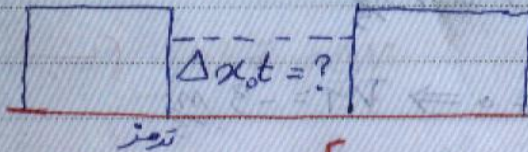 Δx₀t = ?
ترمز